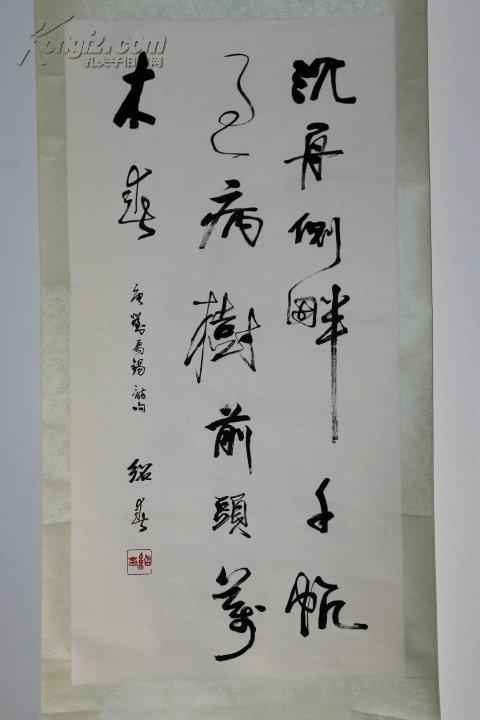 沉舟側畔千帆
過病樹前頭萬
木春
唐劉禹錫詩句
紹春
Kongfz.com
孔夫子旧书网